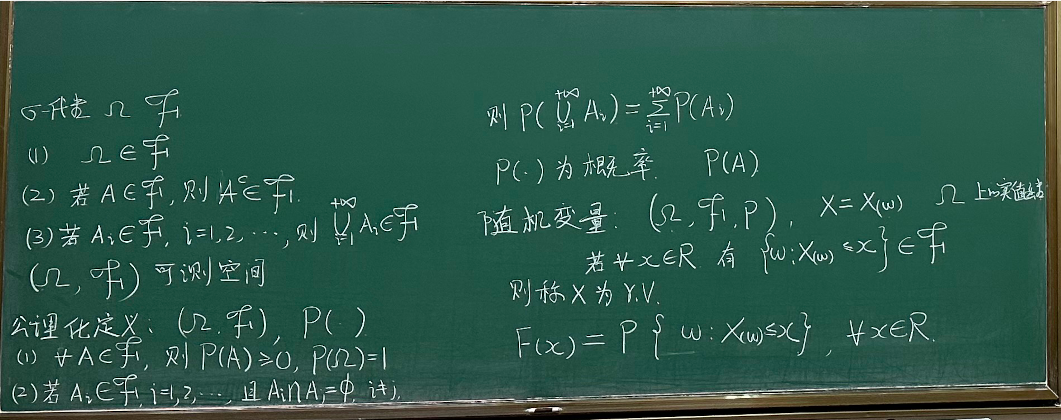 σ-代数 Ω ℱ
(1) Ω∈ℱ
(2) 若 A∈ℱ, 则 Aᶜ∈ℱ.
(3) 若 Aᵢ∈ℱ, i=1,2,⋯, 则 ⋃_{i=1}^{+∞} Aᵢ∈ℱ
(Ω, ℱ) 可测空间
公理化定义: (Ω, ℱ), P(·)
(1) ∀A∈ℱ, 则 P(A)≥0, P(Ω)=1
(2) 若 Aᵢ∈ℱ, i=1,2,⋯, 且 Aᵢ∩Aⱼ=ϕ, i≠j,
则 P(⋃_{i=1}^{+∞} Aᵢ)=∑_{i=1}^{+∞} P(Aᵢ)
P(·) 为概率. P(A)
随机变量: (Ω, ℱ, P), X=X(ω) Ω 上的实值
若 ∀x∈R 有 {ω:X(ω)≤x}∈ℱ
则称 X 为 r.v.
F(x)=P{ω:X(ω)≤x}, ∀x∈R.